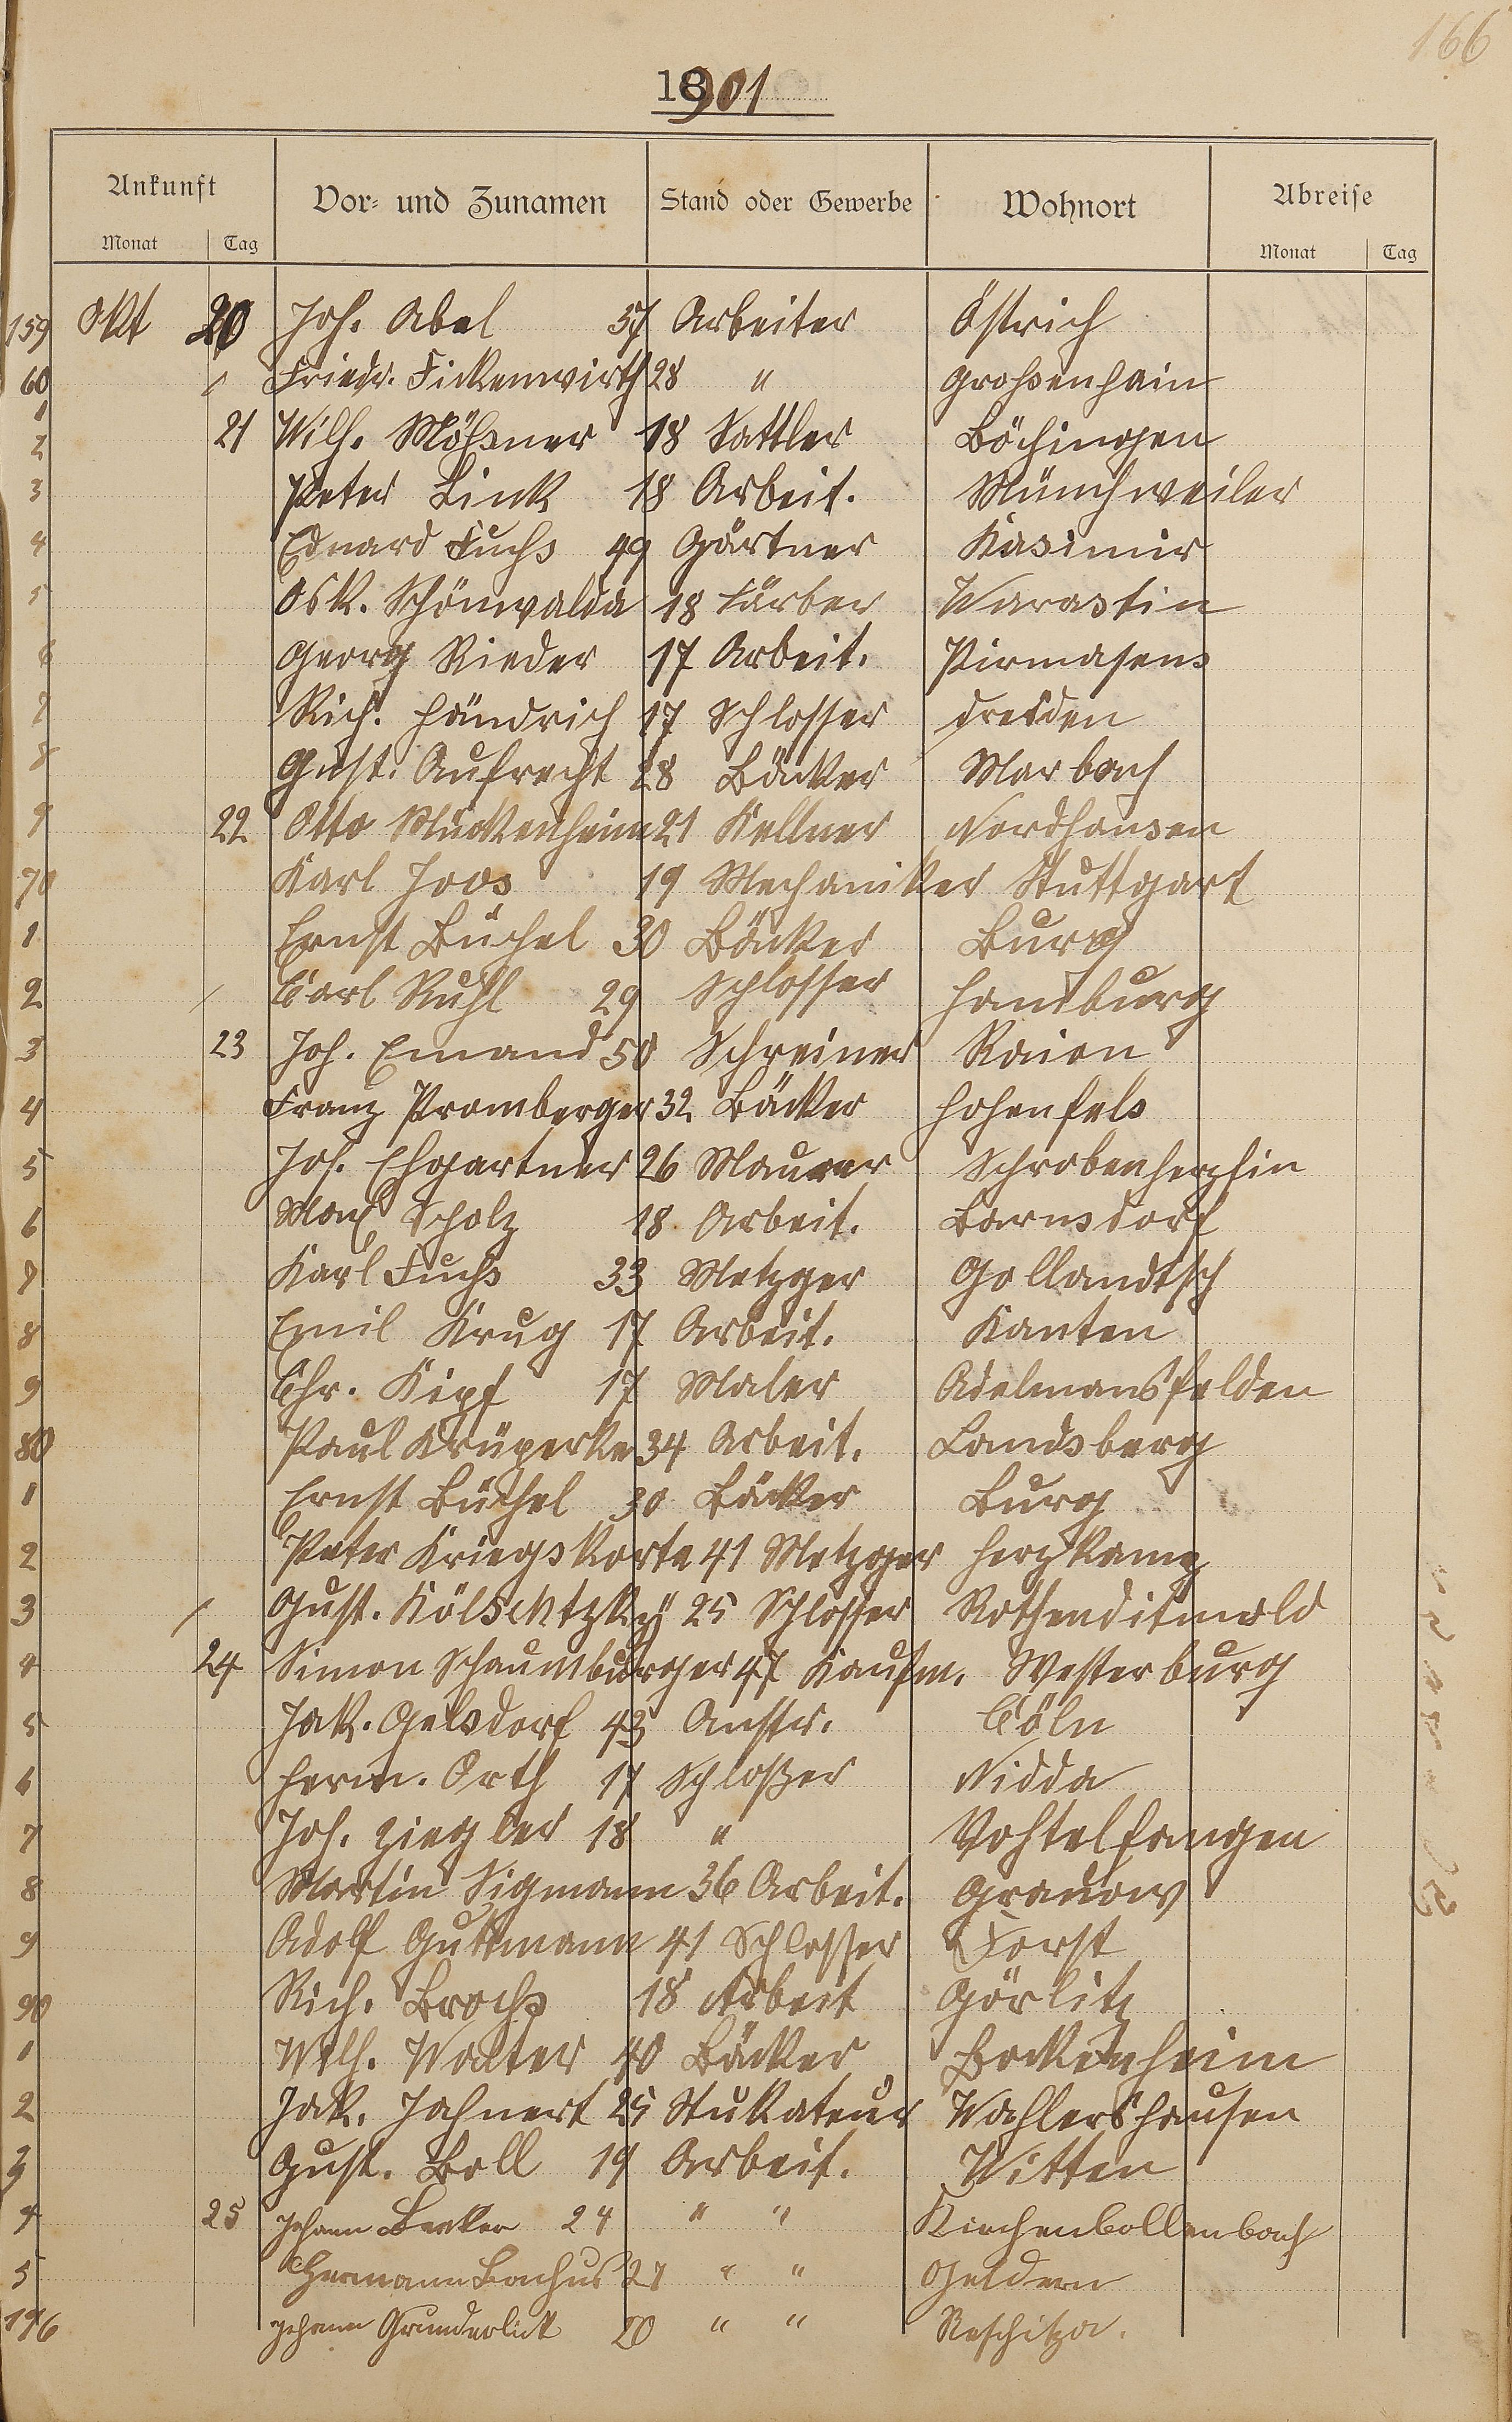 166
1901
Ankunft Vor- und Zunamen Stand oder Gewerbe Wohnort Abreise
Monat Tag Monat Tag
159 Okt 20 Joh. Abel 57 Arbeiter Östrich
60 " Friedr. Fickenwirth 28 " Großenhain
1
2 21 Wilh. Mößner 18 Sattler Böchingen
3 Peter Link 18 Arbeit. Münchweiler
4 Eduard Fuchs 49 Gärtner Kasimir
5 Osk. Schönwalda 18 Färber Warastin
6 Georg Rieder 17 Arbeit. Pirmasens
7 Rich. Händrich 17 Schlosser Dresden
8 Gust. Aufrecht 28 Bäcker Marbach
9 22 Otto Mückenheim 21 Kellner Nordhausen
70 Karl Joos 19 Mechaniker Stuttgart
1 Ernst Büchel 30 Bäcker Burg
2 Carl Ruhl 29 Schlosser Hamburg
3 23 Joh. Emand 50 Schreiner Raion
4 Franz Promberger 32 Bäcker Hohenfels
5 Jos. Ehgartner 26 Maurer
6 Max Scholz 18 Arbeit. Barnsdorf
7 Karl Fuchs 33 Metzger Gollandtsch
8 Emil Krug 17 Arbeit. Kanten
9 Chr. Kipf 17 Maler Adelmansfelden
80 Paul Krüperke 34 Arbeit. Landsberg
1 Ernst Büchel 30 Bäcker Burg
2 Peter Kriegskorte 41 Metzger Herzkamp
3 Gust. 25 Schlosser Rothenditmold
4 24 Simon Schaumburger 47 Kaufm. Westerburg
5 Jak. Gelsdorf 43 Anstr. Cöln
6 Herm. Orth 17 Schloßer Nidda
7 Joh. Ziegler 18 " Vohtelfangen
8 Martin Sigmann 36 Arbeit. Gradow
9 Adolf Guttmann 41 Schlosser Forst
90 Rich. Brochs 18 Arbeit Görlitz
1 Wilh. Walter 40 Bäcker Bockenheim
2 Jak. Jahnert 25 Stukateur Wahlershausen
3 Gust. Boll 19 Arbeit. Witten
4 25 Johann Becker 24 " " Kirchenbollenbach
5 Hermann Bachus 27 " " Geldern
196 Johann Grunderlick 20 " " Reschitza.